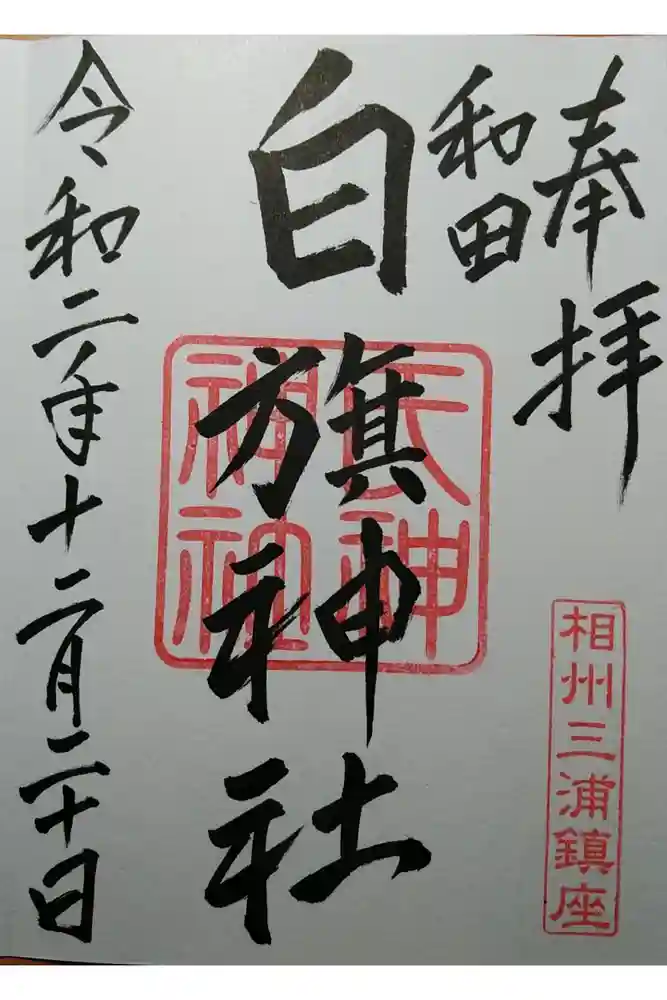 奉拝
和田
白旗神社
令和二年十二月二十日
相州三浦鎮座